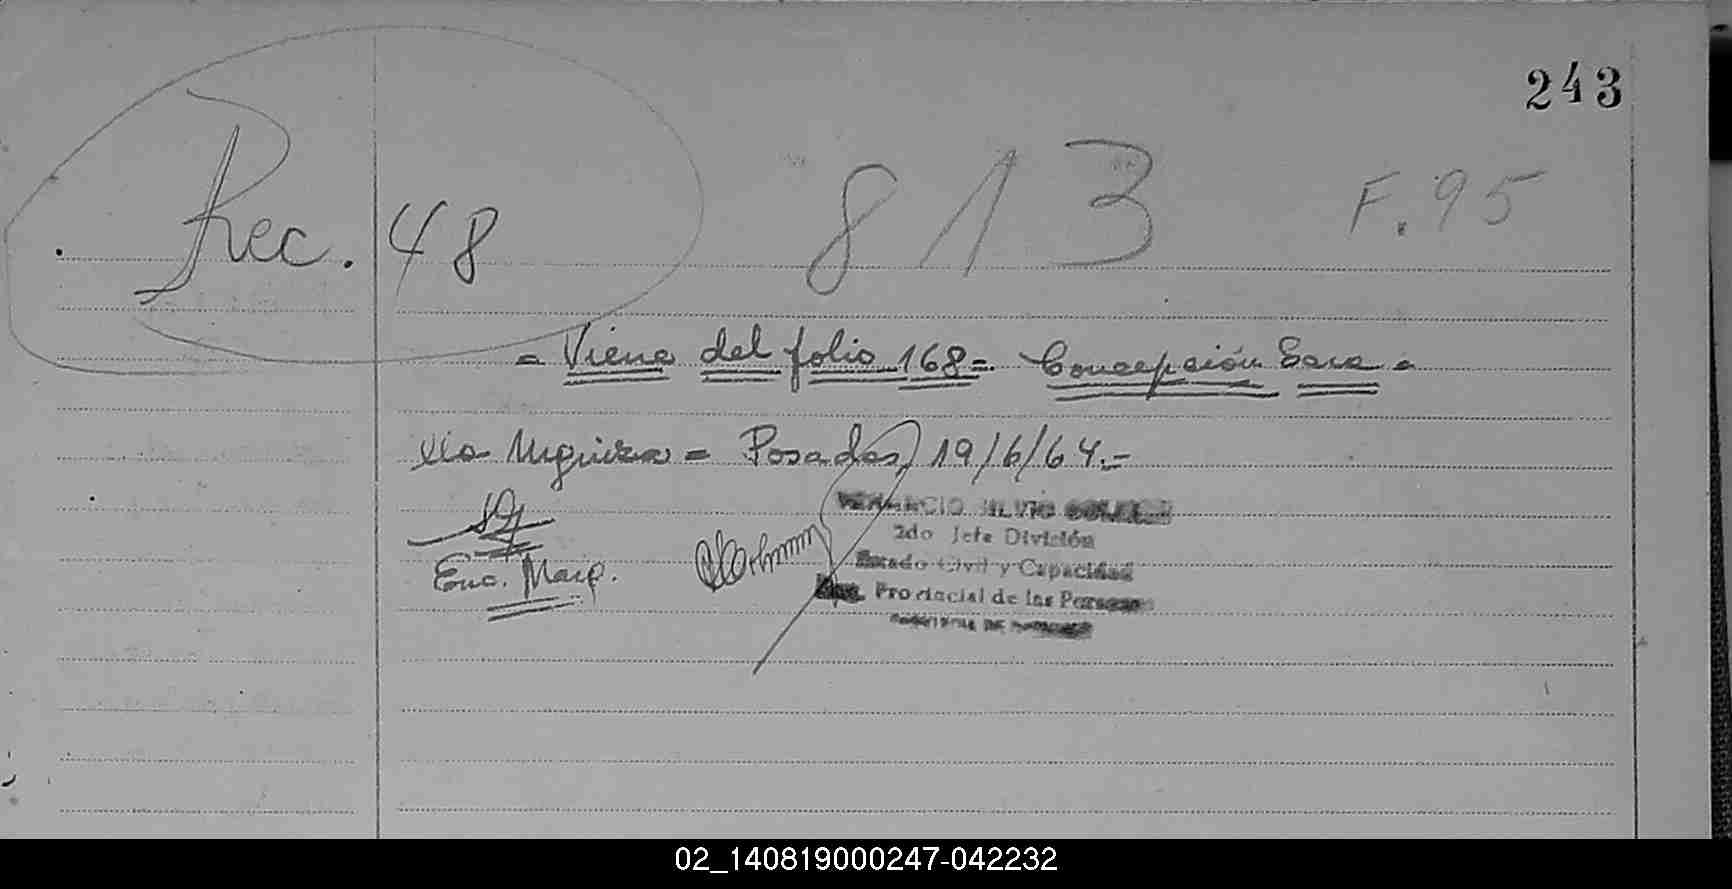 243
Rec. 48
813
F. 95
= Viene del folio 168 =. Concepción Sara =
Urquiza = Posadas, 19/6/64.=
SILVIO
Enc. Marg.
2do Jefe División
Estado Civil y Capacidad
Provincial de las Personas
02_140819000247-042232